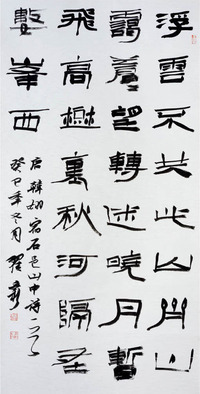 浮雲不共此山齊山
靄蒼望轉迷曉月暫
飛高樹裏秋河隔在
數峯西
唐韓翃宿石邑山中詩一首
癸巳年冬月